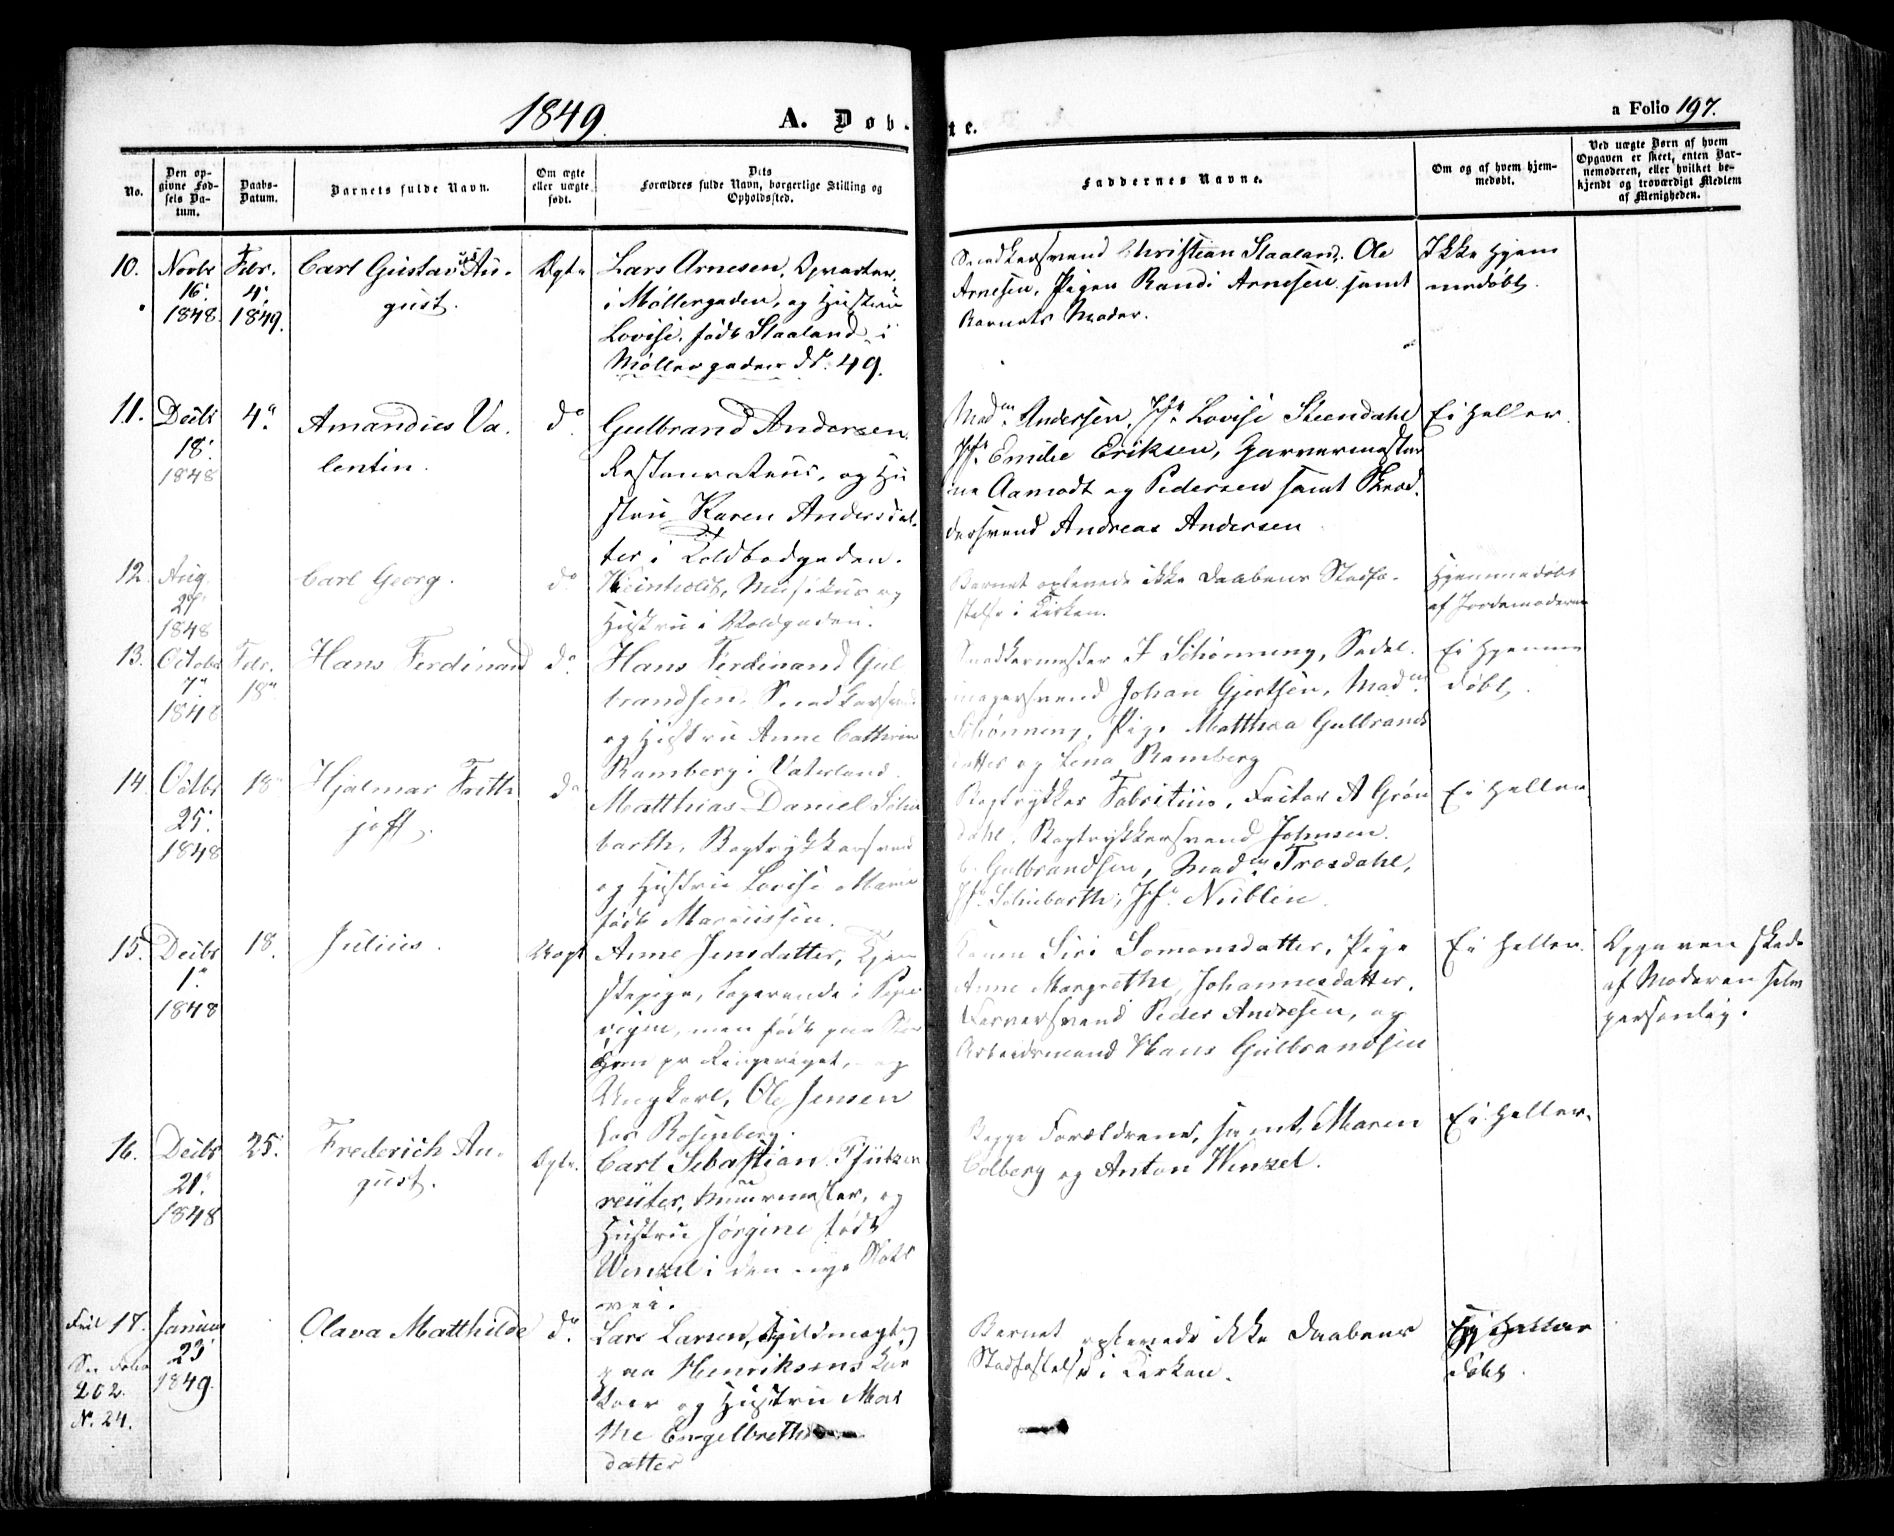 1849.
A. Døb-
te.
a Folio 197.
No.
Den op-
givne Fød-
sels Da-
tum.
Daabs-
Datum.
Barnets fulde Navn.
Om ægte
eller uægte
født.
Dets
Forældres fulde Navn, borgerlige Stilling og
Opholdssted.
Faddernes Navne.
Om og af hvem hjem-
medøbt.
Ved uægte Børn af hvem
Opgaven er skeet, enten Bar-
nemoderen, eller hvilket be-
kjendt og troværdigt Medlem
af Menigheden.
10.
Novbr
16.
1848.
Febr.
4.
1849.
Carl Gustav Au-
gust.
Ægte
Lars Arnesen, Opvarter
i Møllergaden, og Hustru
Lovise, født Staaland i
Møllergaden No. 49.
Snedkersvend Christian Staaland, Ole
Arnesen, Pigen Randi Arnesen samt
Barnets Moder.
Ikke hjem
medøbt.
11.
Decbr
18.
1848
4.
Amandus Va-
lentin.
do
Gulbrand Andersen
Restaurateur, og Hu
stru Karen Andersdat-
ter i Toldbodgaden.
Madm. Andersen, Jfr. Lovise Steendahl
Jfr. Emilie Eriksen, Garvermester
ne Aamodt og Pedersen samt Skræd-
dersvend Andreas Andersen
Ei heller.
12.
Aug.
27
1848
Carl Georg.
do
Reinholdt, Musicus og
Hustru i Voldgaden.
Barnet oplevede ikke Daabens Stadfæ-
stelse i Kirken.
Hjemmedøbt
af Jordemoderen
13.
Octobr
7
1848
Febr.
18
Hans Ferdinand
do
Hans Ferdinand Gul
brandsen, Snedkersvend
og Hustru Anne Cathrine
Ramberg i Vaterland.
Snedkermester J Schønning, Sadel-
magersvend Johan Gjertsen, Madm.
Schønning, Pige Matthea Gulbrands
datter og Lena Ramberg
Ei hjemme
døbt.
14
Octbr
25.
1848
18
Hjalmar Frith
joff.
do
Matthias Daniel Schu
barth, Bogtrykkersvend
og Hustru Lovise Marie
født Marcussen.
Bogtrykker Fabritius, Factor A Grøn
dahl, Bogtrykkersvend Johnsen
C. Gulbrandsen, Madm. Trosdahl,
Jfr. Schubarth, Jfr. Nublin.
Ei heller
15.
Decbr
1.
1848
18.
Julius.
Uægte
Anne Jensdatter, Tjene
stepige, logerende i Pipper
vigen, men født paa
Hjem pr Ringeriget, og
Ungkarl, Ole Jensen
hos Rosenberg.
Kone Siri Somonsdatter, Pige
Anne Margrethe Johannesdatter,
Farversvend Peder Andresen, og
Arbeidsmand Hans Gulbrandsen
Ei heller.
Opgaven skede
af Moderen selv
personlig.
16.
Decbr
21.
1848
25.
Frederich Au-
gust.
Ægte.
Carl Sebastian Pfützen
reuter, Muurmester, og
Hustru Jørgine født
Wenzel i den nye Slots
vei.
Begge Forældrene, samt Maren
Colberg og Anton Wenzel.
Ei heller.
Feil 17.
See Folio
202
N. 24.
Januar
23
1849.
Olava Matthilde
do
Lars Larsen, Fyldmægtig
paa Henriksens
og Hustru Mar
the Engelbrets
datter
Barnet oplevede ikke Daabens
Stadfæstelse i Kirken.
Ei heller
døbt.